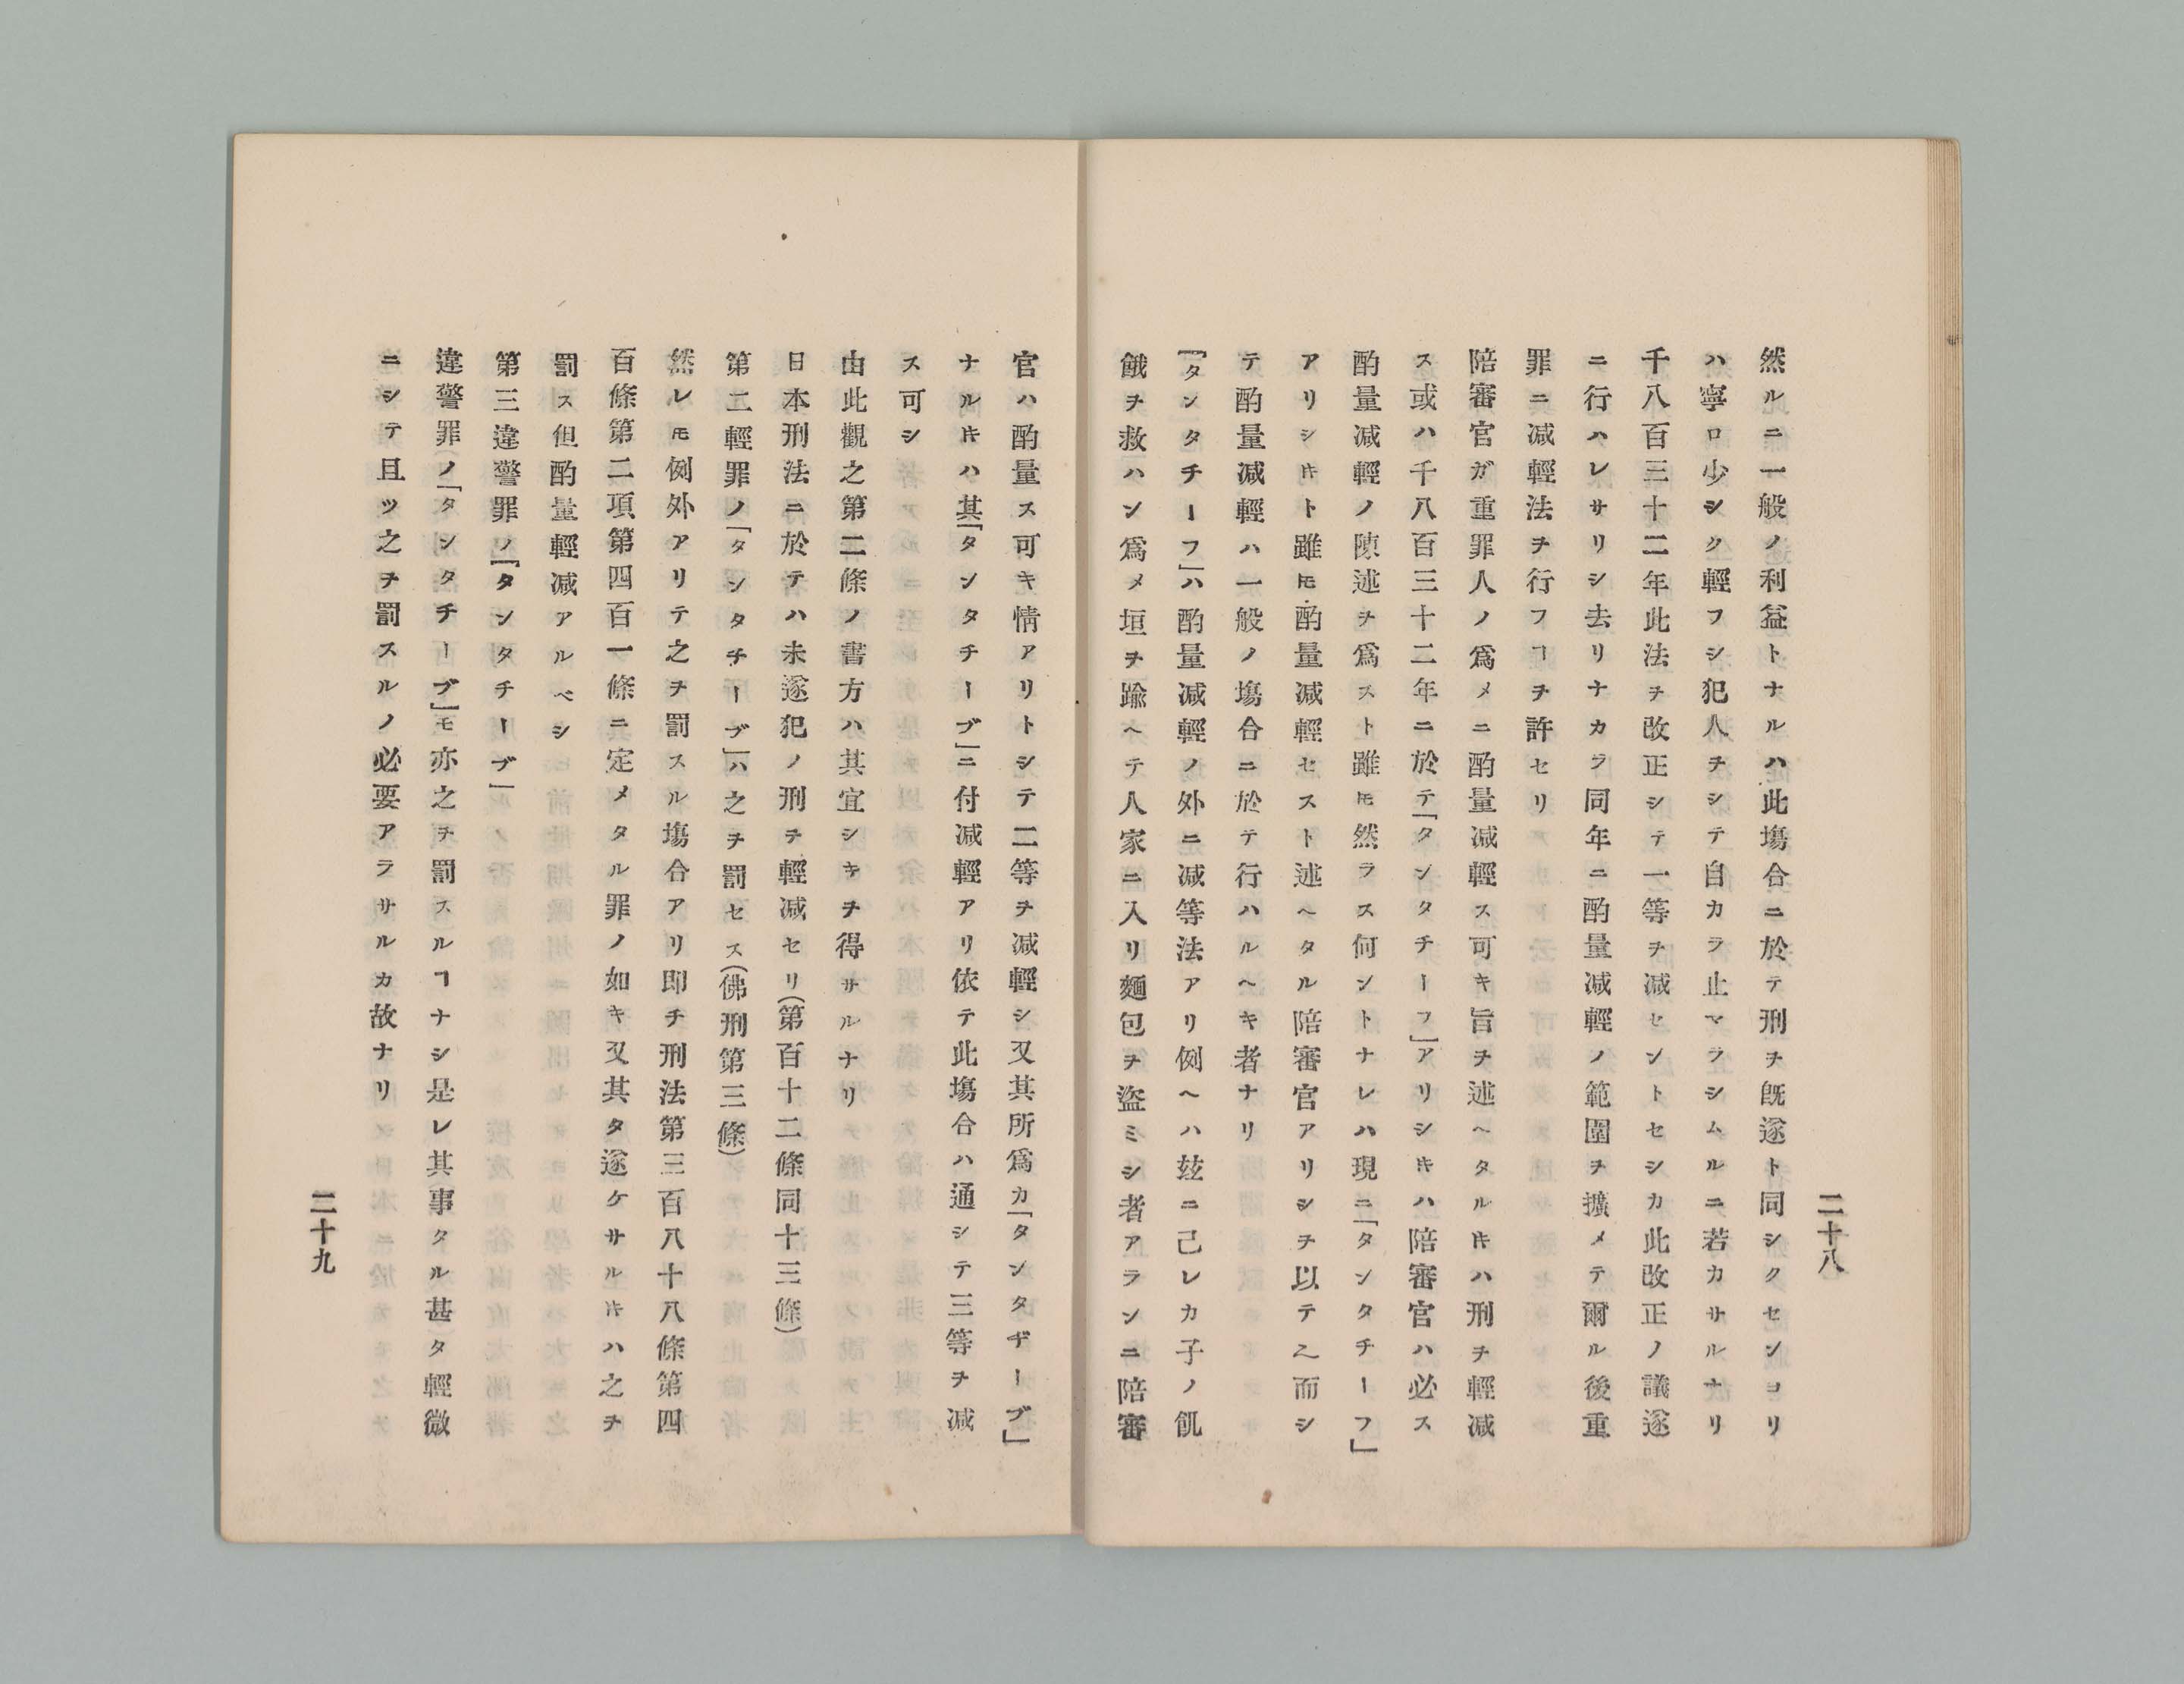 二十八
然ルニ一般ノ利益トナルハ此塲合ニ於テ刑ヲ既遂ト同シクセンヨリ
ハ寧ロ少シク輕フシ犯人ヲシテ自カラ止マラシムルニ若カサルナリ
千八百三十二年此法ヲ改正シテ一等ヲ减セントセシカ此改正ノ議遂
ニ行ハレサリシ去リナカラ同年ニ酌量减輕ノ範圍ヲ擴メテ爾ル後重
罪ニ减輕法ヲ行フヿヲ許セリ
陪審官ガ重罪人ノ爲メニ酌量减輕ス可キ旨ヲ述ヘタルㇳキハ刑ヲ輕减
ス或ハ千八百三十二年ニ於テ「タンタチーフ」アリシㇳキハ陪審官ハ必ス
酌量减輕ノ陳述ヲ爲スト雖𪜈然ラス何ントナレハ現ニ「タンタチーフ」
アリシㇳキト雖𪜈酌量减輕セスト述ヘタル陪審官アリシヲ以テ之而シ
テ酌量减輕ハ一般ノ塲合ニ於テ行ハルヘキ者ナリ
「タンタチーフ」ハ酌量减輕ノ外ニ减等法アリ例ヘハ玆ニ己レカ子ノ飢
餓ヲ救ハン爲メ垣ヲ踰ヘテ人家ニ入リ麵包ヲ盜ミシ者アランニ陪審
官ハ酌量ス可キ情アリトシテ二等ヲ减輕シ又其所爲カ「タンタヂーブ」
ナルㇳキハ其「タンタチーブ」ニ付减輕アリ依テ此塲合ハ通シテ三等ヲ减
ス可シ
由此觀之第二條ノ書方ハ其宜シキヲ得サルナリ
日本刑法ニ於テハ未遂犯ノ刑ヲ輕减セリ(第百十二條同十三條)
第二輕罪ノ「タンタチーブ」ハ之ヲ罰セス(佛刑第三條)
然レ𪜈例外アリテ之ヲ罰スル塲合アリ即チ刑法第三百八十八條第四
百條第二項第四百一條ニ定メタル罪ノ如キ又其タ遂ケサルㇳキハ之ヲ
罰ス但酌量輕减アルベシ
第三違警罪ノ「タンタチーブ」
違警罪ノ「タンタチーブ」モ亦之ヲ罰スルヿナシ是レ其事タル甚タ輕微
ニシテ且ッ之ヲ罰スルノ必要アラサルカ故ナリ
二十九